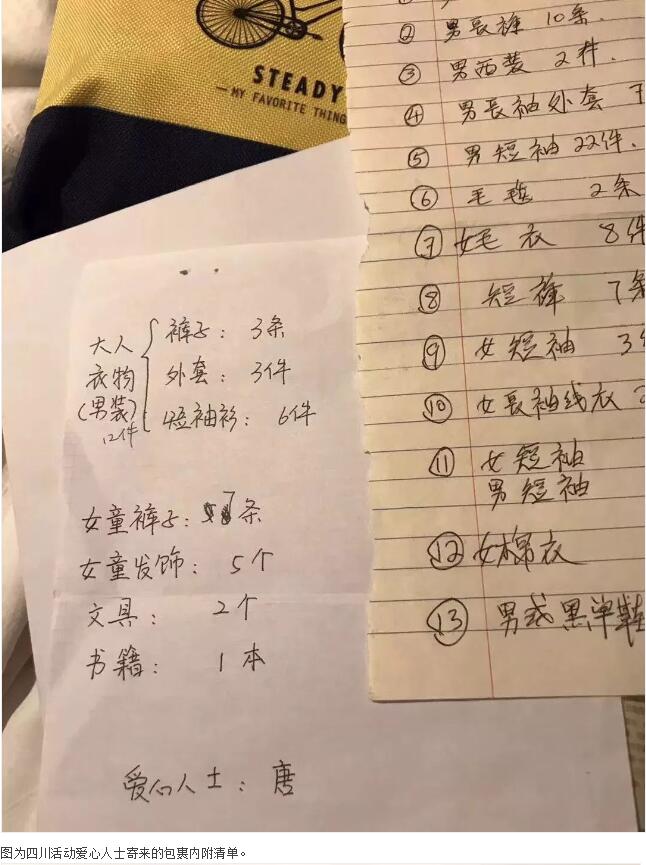 STEADY
— MY FAVORITE THING
② 男長裤 10条.
③ 男西装 2件.
④ 男長袖外套
⑤ 男短袖 22件.
⑥ 毛毯 2条
⑦ 女毛衣 8件
⑧ 短裤 7条
⑨ 女短袖 3
⑩ 女長袖线衣
⑪ 女短袖
男短袖
⑫ 女棉衣
⑬ 男 黑单鞋
大人衣物(男装)12件
裤子: 3条
外套: 3件
短袖衫: 6件
女童裤子: 7条
女童发饰: 5个
文具: 2个
书籍: 1本
爱心人士: 唐
图为四川活动爱心人士寄来的包裹内附清单。